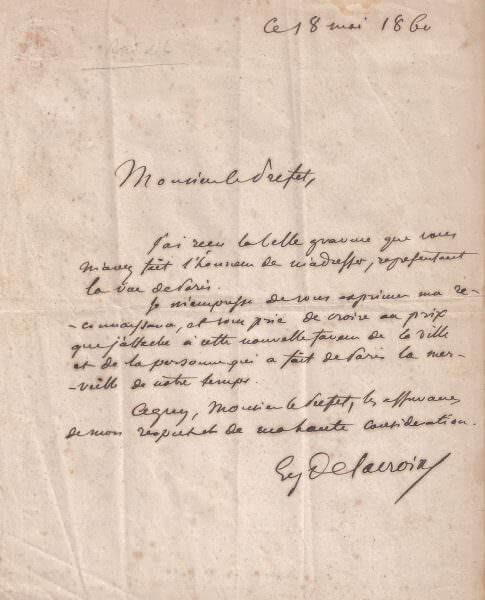 Ce 18 mai 1860
Monsieur le Prefet,
J'ai reçu la belle gravure que vous
m'avez fait l'honneur de m'adresser, représentant
la vue de Paris.
Je m'empresse de vous exprimer ma re-
-connaissance, et vous prie de croire au prix
que j'attache à cette nouvelle faveur de la ville
et de la personne qui a fait de Paris la mer-
-veille de notre temps.
Agreez, Monsieur le Prefet, les assurances
de mon respect et de ma haute consideration.
Eug Delacroix